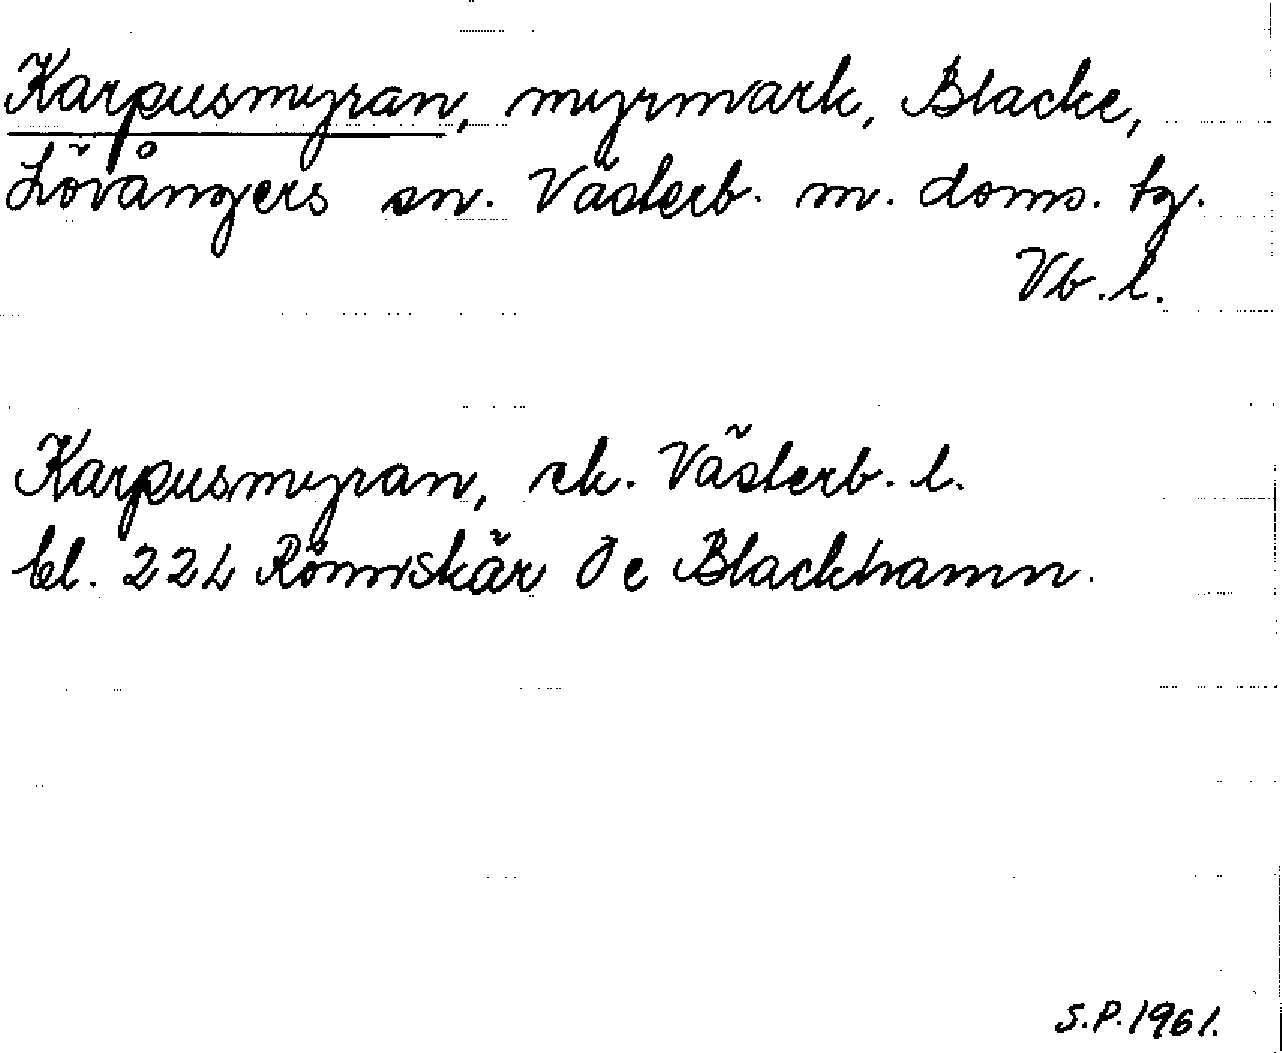 Karpusmyran, myrmark, Blacke,
Lövångers sn. Västerb. m. doms. tg.
Vb. l.
Karpusmyran, ek. Västerb. l.
bl. 22L Rönnskär Öe Blackhamn.
S.P. 1961.